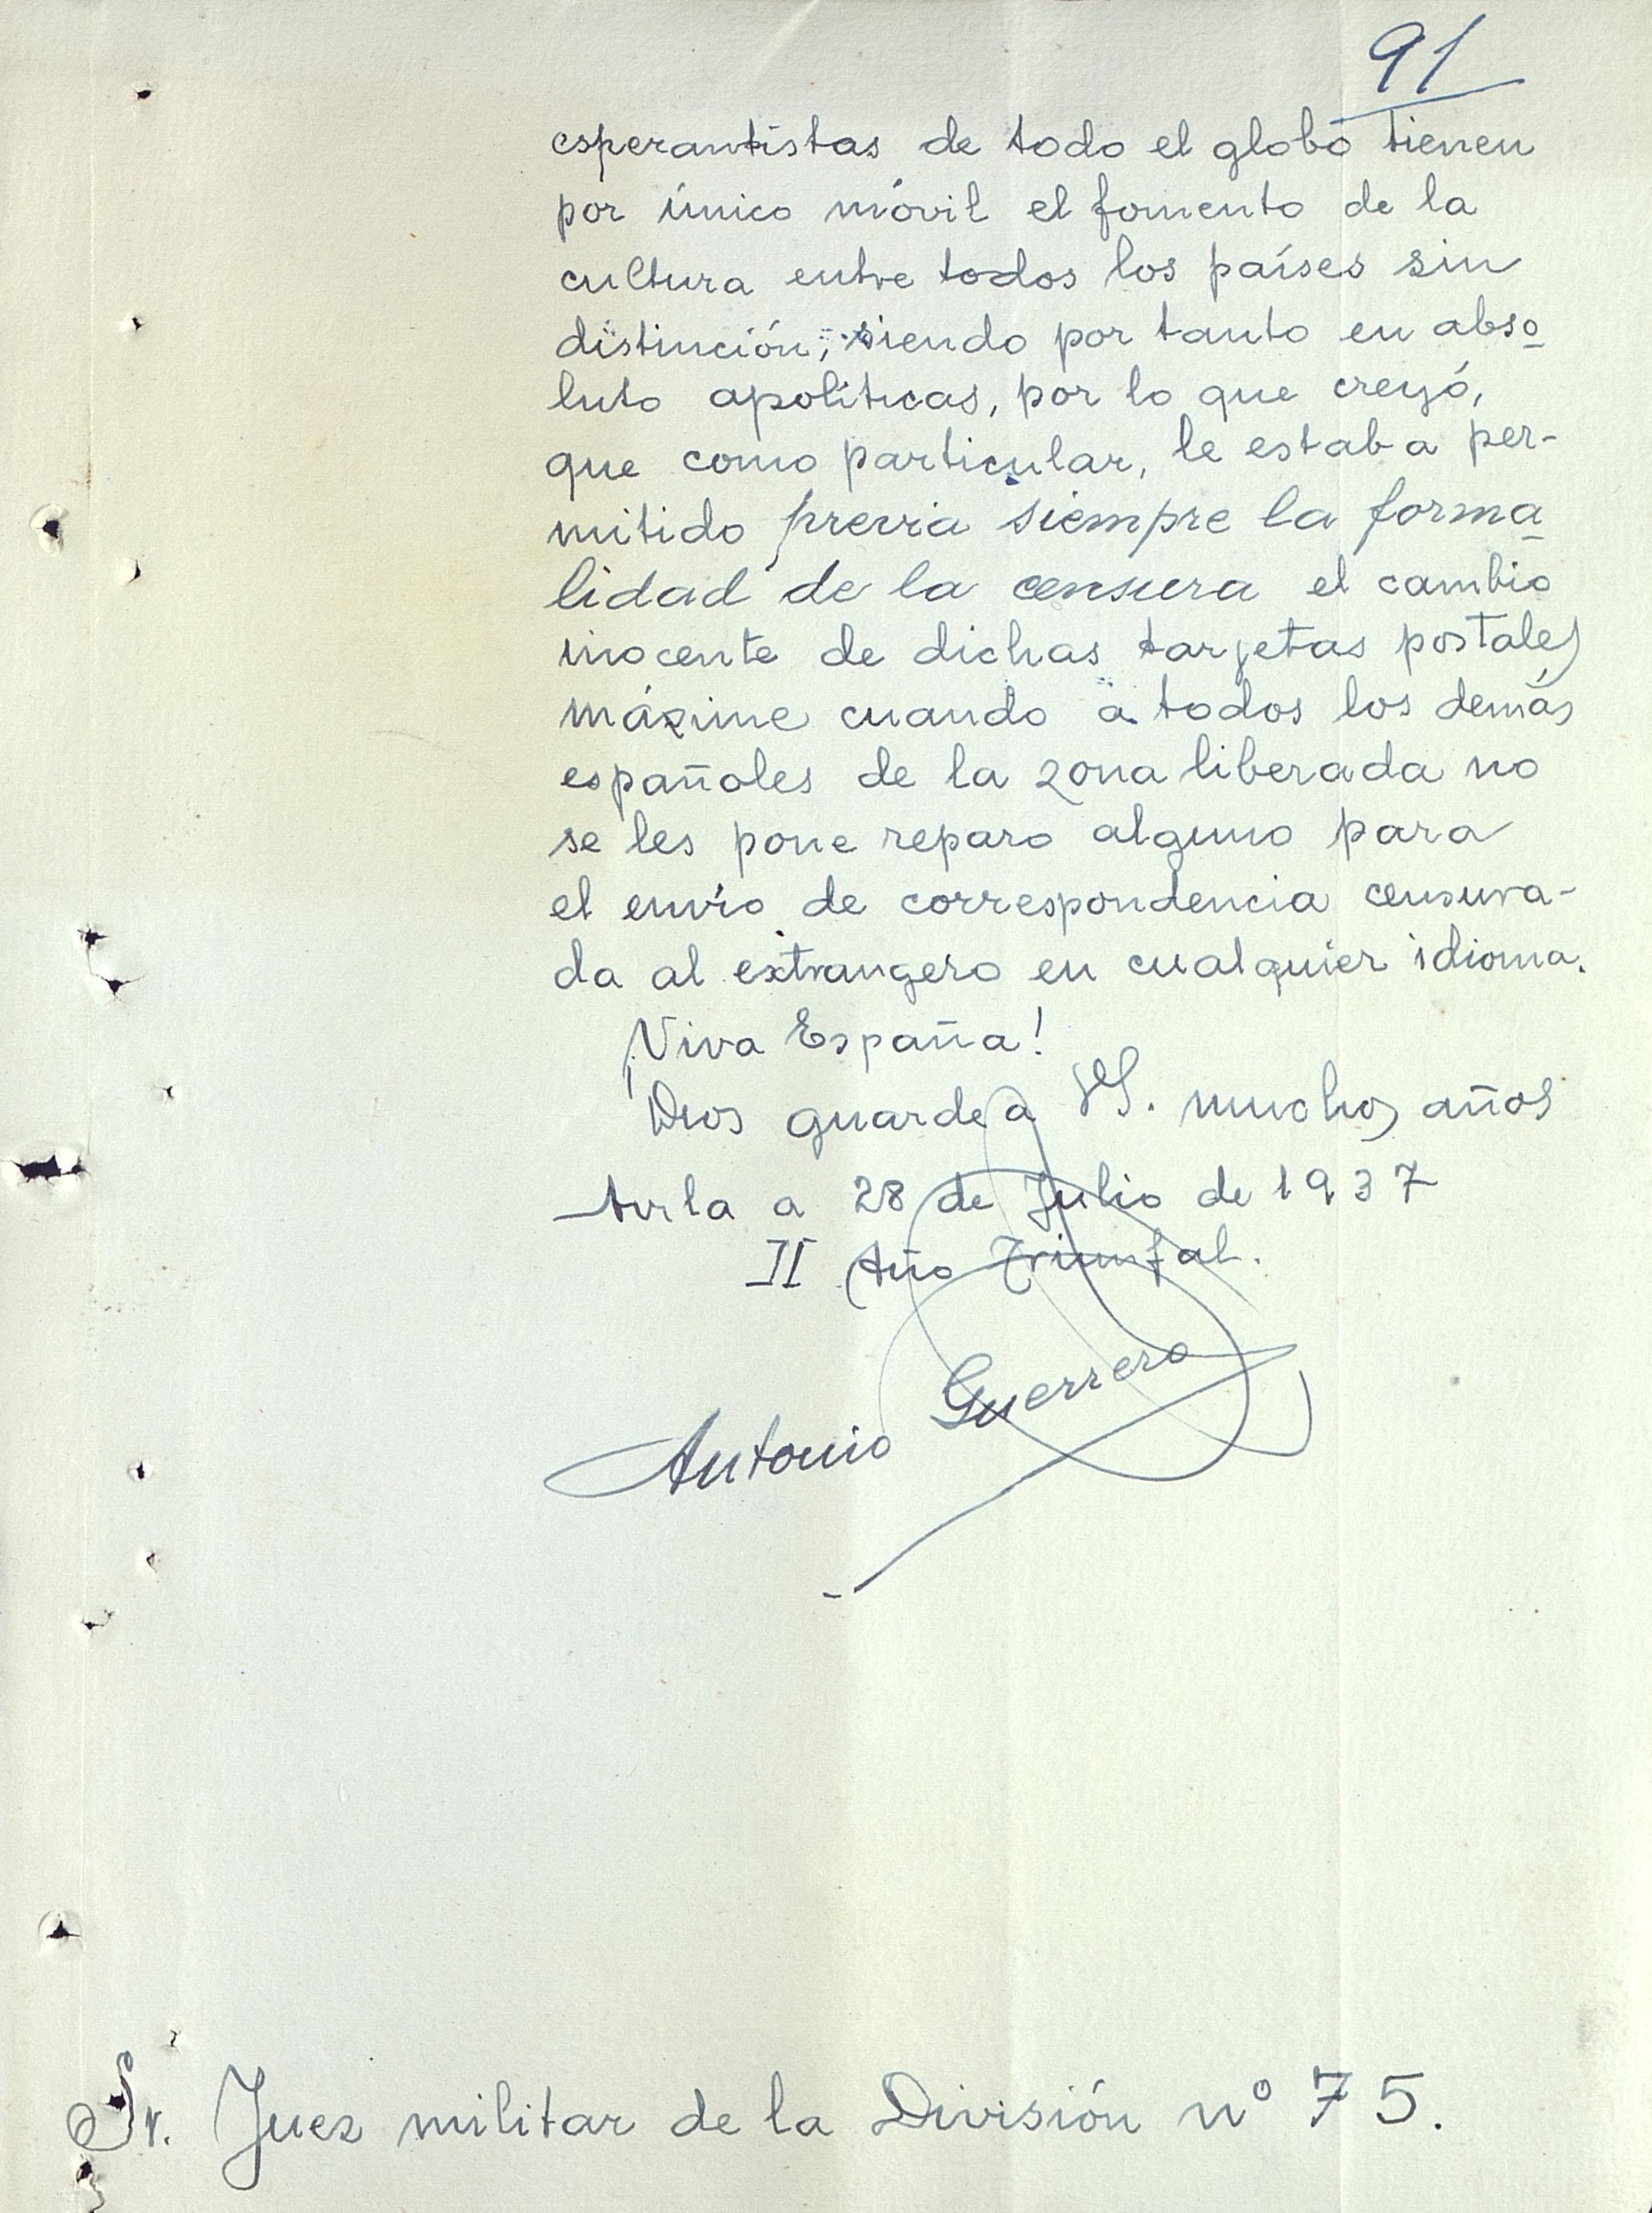 91
esperantistas de todo el globo tienen
por único móvil el fomento de la
cultura entre todos los países sin
distinción, siendo por tanto en abso
luto apolíticas, por lo que creyó,
que como particular, le estaba per-
mitido previa siempre la forma
lidad de la censura el cambio
inocente de dichas tarjetas postales
máxime cuando a todos los demás
españoles de la zona liberada no
se les pone reparo alguno para
el envío de correspondencia censura-
da al extrangero en cualquier idioma.
¡Viva España!
Dios guarde a VS. muchos años
Avila a 28 de Julio de 1937
II Año Triunfal.
Antonio Guerrero
Sr. Juez militar de la División nº 75.